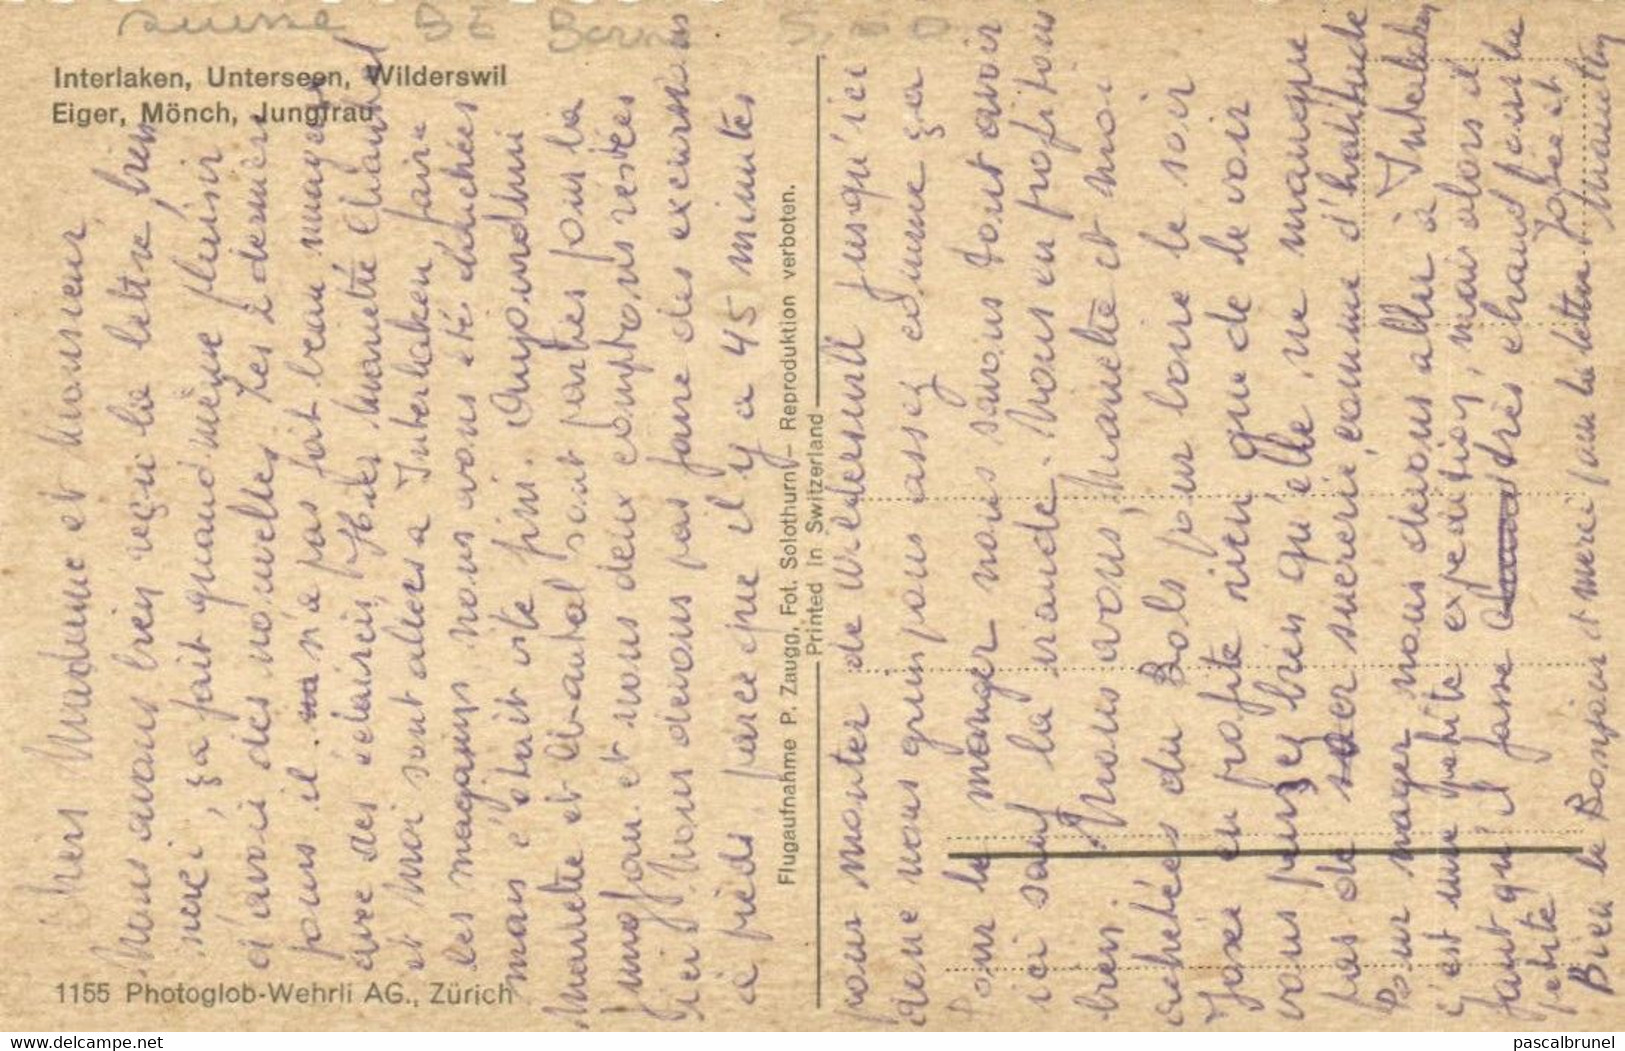 suisse BE Berne
Interlaken, Unterseen, Wilderswil
Eiger, Mönch, Jungfrau
Chers Madame et Monsieur,
Nous avons bien reçu la lettre, bien
merci, ça fait quand même plaisir
d'avoir des nouvelles. Les 2 derniers
jours il n'a pas fait beau nuageux
avec des éclaircis, Hier Mariette Chantal
et moi sont alles a Interlaken faire
les magasins nous avons été
mais c'était vite fini. Aujourdhui
Mariette et Chantal sont parties pour la
Jungfrau et nous deux comptions restées
ici. Nous devons pas faire des excursions
à pieds parce que il y a 45 minutes
Flugaufnahme P. Zaugg, Fot. Solothurn – Reproduktion verboten.
Printed in Switzerland
pour monter de Wilderswil jusqu'ici
donc nous grimpons assez comme ça
Pour le manger nous savons tout avoir
ici sauf la viande. Nous en profitons
bien. Nous avons, Mariette et moi
achetées du Bols pour boire le soir
José en profite rien que de le voir
vous pensez bien qu'elle ne manque
pas de sucrerie, comme d'habitude
Pour nager nous devons aller à Interlaken
c'est une petite expedition, mais alors il
faut qu'il fasse très chaud pour la
petite
José et
Bien le Bonjour et merci pour la lettre
1155 Photoglob-Wehrli AG., Zürich
www.delcampe.net
pascalbrunel